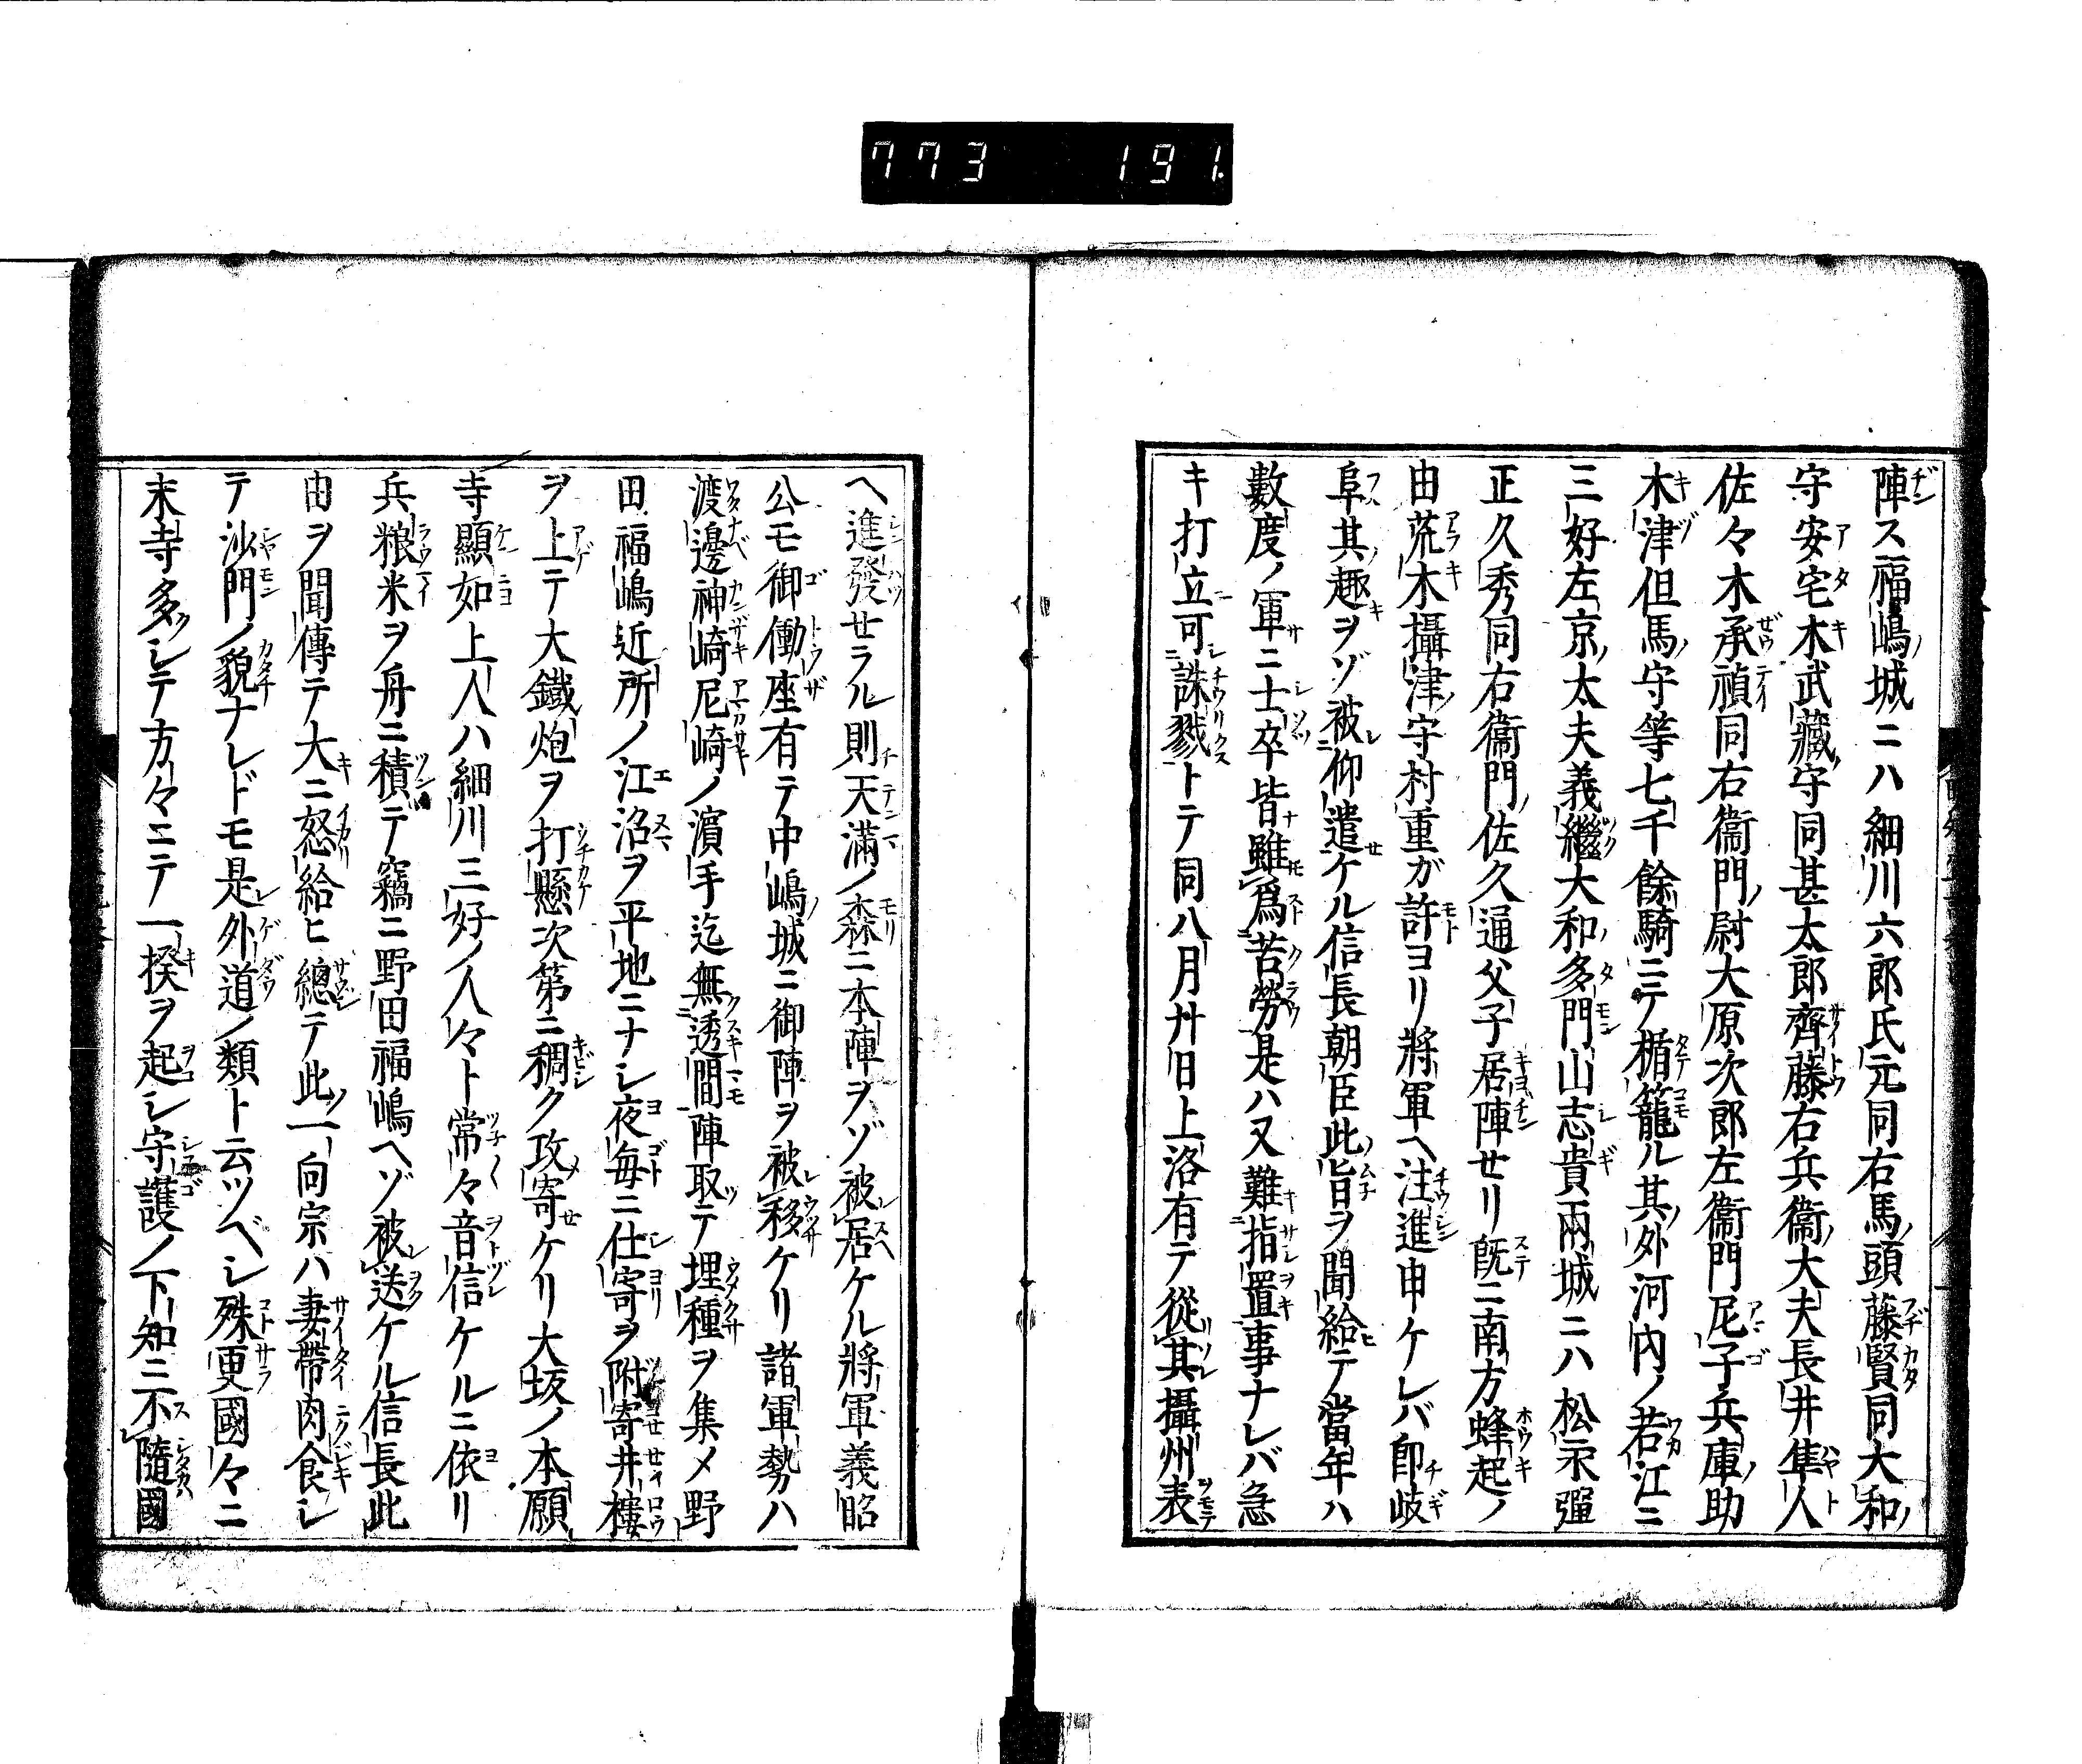 773 191.
陣ス福嶋城ニハ細川六郎氏元同右馬頭藤賢同大和
守安宅木武藏守同甚太郎齊藤右兵衞大夫長井隼人
佐々木承禎同右衞門尉大原次郎左衞門尼子兵庫助
木津但馬守等七千餘騎ニテ楯籠ル其外河内ノ若江ニ
三好左京太夫義繼大和多門山志貴兩城ニハ松永彈
正久秀同右衞門佐久通父子居陣せリ既ニ南方蜂起ノ
由荒木攝津守村重ガ許ヨリ將軍ヘ注進申ケレバ即岐
阜其趣ヲゾ被仰遣ケル信長朝臣此旨ヲ聞給テ當年ハ
數度ノ軍ニ士卒皆雖爲苦勞是ハ又難指置事ナレバ急
キ打立可誅戮トテ同八月廾日上洛有テ從其攝州表
ヘ進發せラル則天滿ノ森ニ本陣ヲゾ被居ケル將軍義昭
公モ御働座有テ中嶋城ニ御陣ヲ被移ケリ諸軍勢ハ
渡邊神崎尼崎ノ濱手迄無透間陣取テ埋種ヲ集メ野
田福嶋近所ノ江沼ヲ平地ニナシ夜毎ニ仕寄ヲ附寄井樓
ヲ上テ大鐵炮ヲ打懸次第ニ稠ク攻寄ケリ大坂ノ本願
寺顯如上人ハ細川三好ノ人々ト常々音信ケルニ依リ
兵粮米ヲ舟ニ積デ竊ニ野田福嶋ヘゾ被送ケル信長此
由ヲ聞傳テ大ニ怒給ヒ總テ此一向宗ハ妻帶肉食シ
テ沙門ノ貌ナレドモ是外道ノ類ト云ツベシ殊更國々ニ
末寺多シテ方々ニテ一揆ヲ起シ守護ノ下知ニ不隨國